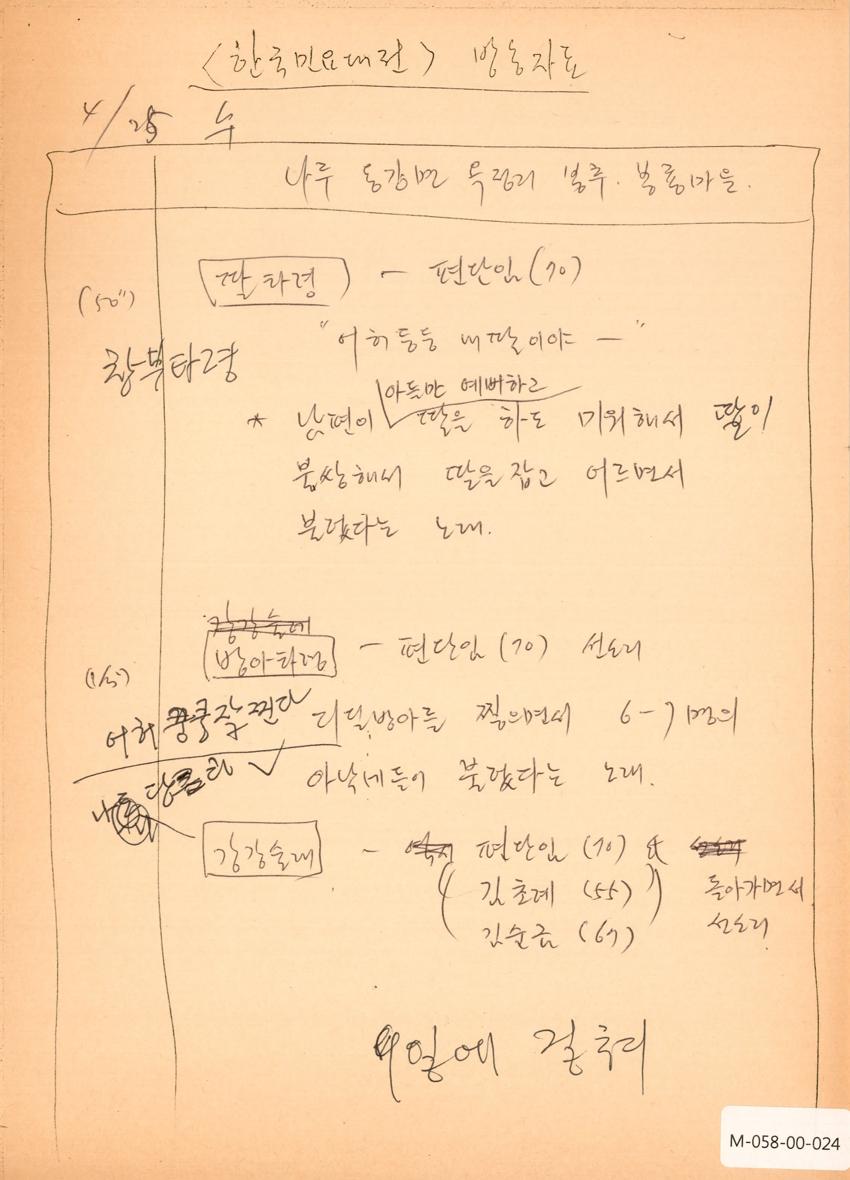 <한국민요대전> 방송자료
4/25 수
나주 동강면 옥정리 봉추. 봉룡마을.
딸 타령 - 편단임 (70)
(50")
"어허둥둥 내딸이야 —"
창부타령
아들만 예뻐하고
* 남편이 딸을 하도 미워해서 딸이
불쌍해서 딸을 잡고 어르면서
불렀다는 노래.
강강술래
방아타령 - 편단임 (70) 선소리
(1분)
어허 쿵쿵 잘 찐다 디딜방아를 찧으면서 6-7명의
아낙네들이 불렀다는 노래.
강강술래 - 편단임 (70) &
김초례 (55) 돌아가면서
김순금 (67) 선소리
M-058-00-024